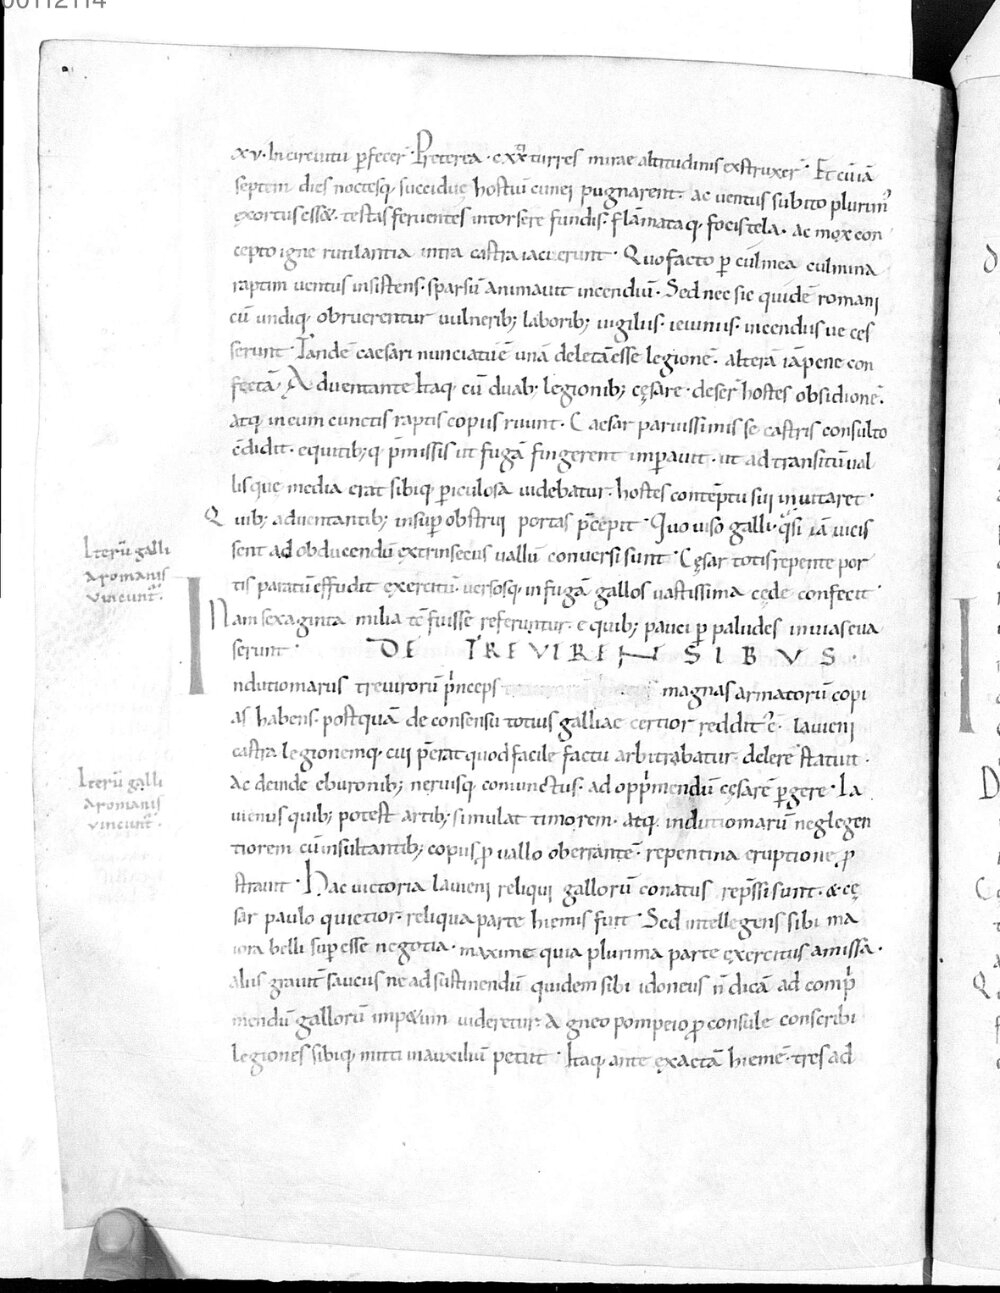 00112114
xv · In circuitu ꝑfecer̄ · Preterea · cxx turres mirae altitudinis exstruxer̄ · Et cū iā
septem dies noctesq; succidue hostiū cunei pugnarent · ac uentus subito plurim᷒
exortus ess& · testas feruentes intorsere fundis · flāmataq; focis tela · ac mox con
cepto igne rutilantia intra castra iacuerunt · Quo facto ꝑ culmea culmina
raptim uentus insistens · sparsū animauit incendiū · Sed nec sic quidē romani
cū undiq; obruerentur uulnerib; laborib; uigiliis · ieiuniis · incendiis ue ces
serunt · Tandē caesari nunciatū ē unā deletā esse legionē · alterā iā pene con
fectā · Aduentante itaq; cū duab; legionib; cęsare · deser̄ hostes obsidionē ·
atq; in eum cunctis raptis copiis ruunt · Caesar paruissimis se castris consulto
c̄didit · equitib;q; p̄missis ut fugā fingerent imꝑauit · ut ad transitū ual
lis que media erat sibiq; ꝑiculosa uidebatur · hostes contēptu sui inuitaret ·
Quib; aduentantib; insuꝑ obstrui portas p̄cepit · Quo uiso galli · q̄si iā uicis
sent ad obducendū extrinsecus uallū conuersi sunt · Cęsar totis repente por
tis paratū effudit exercitū · uersosq; in fugā gallos uastissima cęde confecit
Nam sexaginta milia tc̄ fuisse referuntur · e quib; pauci ꝑ paludes inuias eua
serunt · DE TREVIRENSIBVS
Iterū galli
a romanis
uincunt᷑ ·
Indutiomarus treuirorū p̄nceps magnas armatorū copi
as habens · postquā de consensu totius galliae certior reddit᷒ ē · lauieni
castra legionemq; cui p̄erat quod facile factu arbitrabatur · delere statuit ·
ac deinde eburonib; neruisq; coniunctus · ad oppⁱmendū cęsarē ꝑgere · La
uienus quib; potest artib; simulat timorem · atq; indutiomarū neglegen
tiorem cū insultantib; copiis ꝓ uallo oberrantē · repentina eruptione ꝓ
Iterū galli
a romanis
uincunt᷑ ·
strauit · Hac uictoria lauieni reliqui gallorū conatus rep̄ssi sunt · & cę
sar paulo quietior · reliqua parte hiemis fuit · Sed intellegens sibi ma
iora belli suꝑesse negotia · maxime quia plurima parte exercitus amissa ·
aliis grauit̄ saucus ne ad sustinendū quidem sibi idoneus n̄ dicā ad compⁱ
mendū gallorū imp&um uideretur · A gneo pompeio ꝓconsule conscribi
legiones sibiq; mitti in auxiliū petiit · Itaq; ante exactā hiemē · tres ad